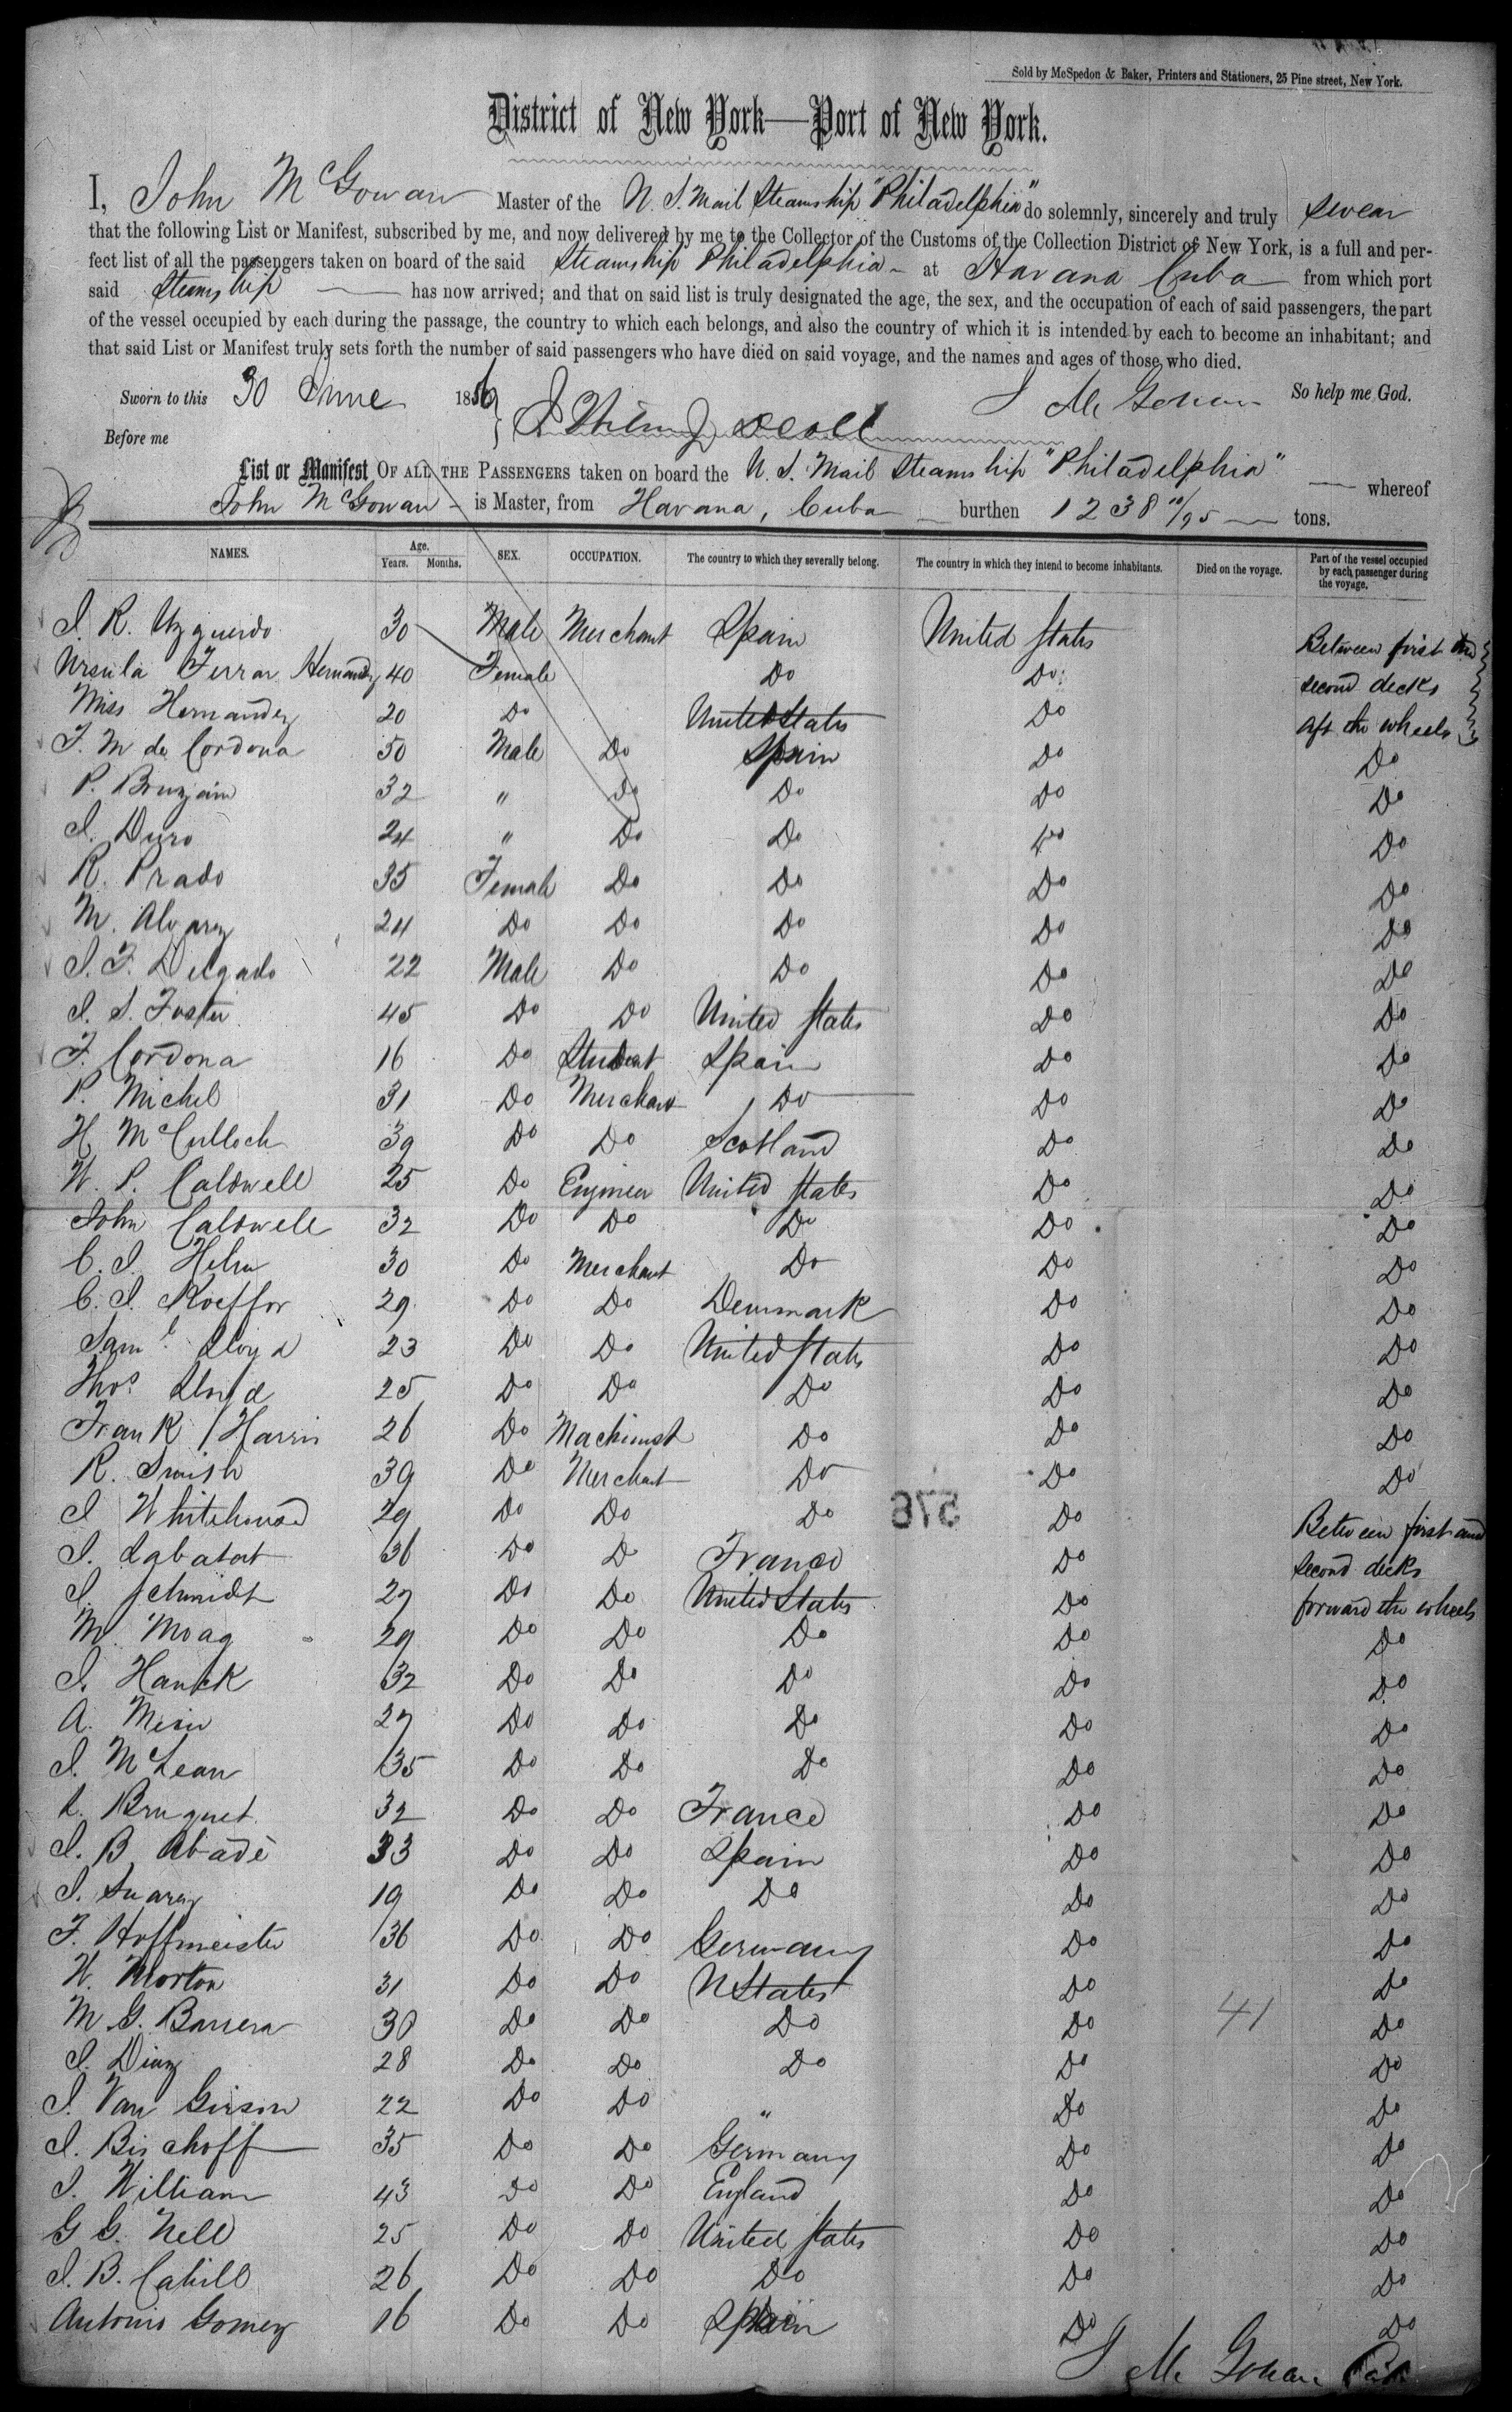 Sold by McSpedon & Baker, Printers and Stationers, 25 Pine street, New York.
District of New York—Port of New York.
I, John McGowan Master of the U. S. Mail Steamship "Philadelphia" do solemnly, sincerely and truly swear
that the following List or Manifest, subscribed by me, and now delivered by me to the Collector of the Customs of the Collection District of New York, is a full and per-
fect list of all the passengers taken on board of the said Steamship Philadelphia - at Havana Cuba from which port
said Steamship has now arrived; and that on said list is truly designated the age, the sex, and the occupation of each of said passengers, the part
of the vessel occupied by each during the passage, the country to which each belongs, and also the country of which it is intended by each to become an inhabitant; and
that said List or Manifest truly sets forth the number of said passengers who have died on said voyage, and the names and ages of those who died.
Sworn to this 30 June 1856 J McGowan So help me God.
Before me
List or Manifest OF ALL THE PASSENGERS taken on board the U. S. Mail Steamship "Philadelphia" whereof
John McGowan - is Master, from Havana, Cuba burthen 1238 10/95 tons.
NAMES. Age. Years. Months. SEX. OCCUPATION. The country to which they severally belong. The country in which they intend to become inhabitants. Died on the voyage. Part of the vessel occupied by each passenger during the voyage.
J. R. Yzquerdo 30 Male Merchant Spain United States Between first and
Ursula Ferrar Hernandez 40 Female Do Do second decks
Miss Hernandez 20 Do United States Do aft the wheels
F. M de Cordona 50 Male Do Spain Do Do
P. 32 " Do Do Do Do
J. Duro 24 " Do Do Do Do
R. Prado 35 Female Do Do Do Do
M. Alvarez 24 Do Do Do Do Do
J. F. Delgado 22 Male Do Do Do Do
J. S. Foster 45 Do Do United States Do Do
F. Cordona 16 Do Student Spain Do Do
P. Michel 31 Do Merchant Do Do Do
H McCulloch 39 Do Do Scotland Do Do
W. P. Caldwell 25 Do Engineer United States Do Do
John Caldwell 32 Do Do Do Do Do
C. J. Helm 30 Do Merchant Do Do Do
C. J. Koeffor 29 Do Do Denmark Do Do
Saml Lloyd 23 Do Do United States Do Do
Thos Lloyd 25 Do Do Do Do Do
Frank Harris 26 Do Machinist Do Do Do
R. Smith 39 Do Merchant Do Do Do
J 29 Do Do Do 576 Do Between first and
J. Labatat 36 Do Do France Do second decks
J. Schmidt 27 Do Do United States Do forward the wheels
M. Moag 29 Do Do Do Do Do
J. Hanck 32 Do Do Do Do Do
A. 27 Do Do Do Do Do
J. McLean 35 Do Do Do Do Do
L. Bruguet 32 Do Do France Do Do
J. B Abadé 33 Do Do Spain Do Do
J. Suarez 19 Do Do Do Do Do
F. Hoffmeister 36 Do Do Germany Do Do
W. Morton 31 Do Do U States Do Do
M. G. Barrera 30 Do Do Do Do 41 Do
J. Diaz 28 Do Do Do Do Do
J. Van 22 Do Do " Do Do
J. Bischoff 35 Do Do Germany Do Do
J. William 43 Do Do England Do Do
G G. Nell 25 Do Do United States Do Do
J. B. Cahill 26 Do Do Do Do Do
Antonio Gomez 16 Do Do Spain Do Do
J McGowan